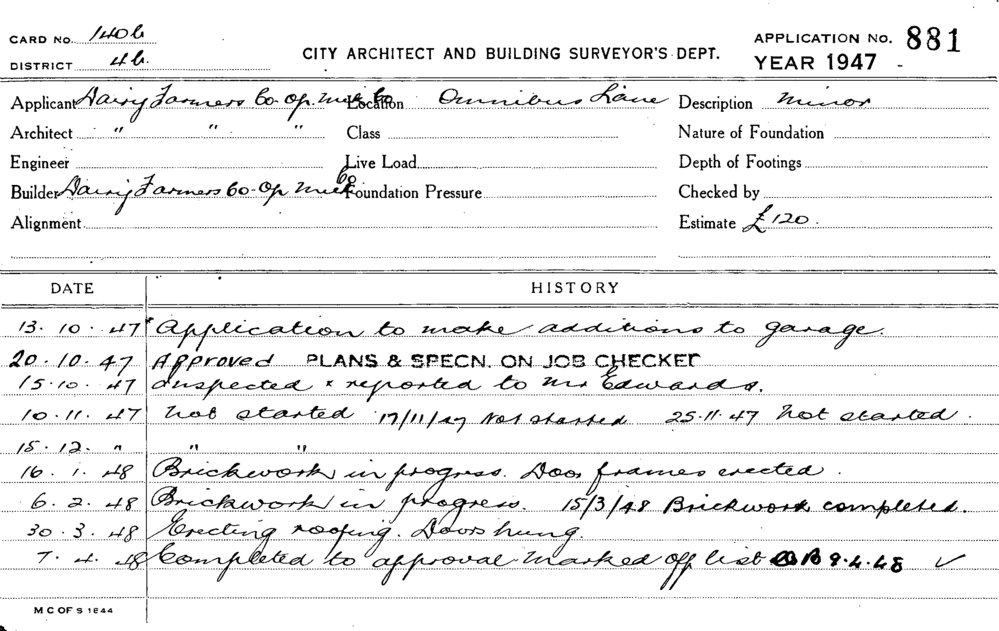 CARD No. 140b
DISTRICT 4b.
CITY ARCHITECT AND BUILDING SURVEYOR'S DEPT.
APPLICATION No. 881
YEAR 1947
Applicant Dairy Farmers Co. Op. Milk Co Location Omnibus Lane Description Minor
Architect " " " Class Nature of Foundation
Engineer Live Load Depth of Footings
Builder Dairy Farmers Co-Op Milk Co Foundation Pressure Checked by
Alignment Estimate £120.
DATE HISTORY
13. 10. 47 Application to make additions to garage.
20. 10. 47 Approved PLANS & SPECN. ON JOB CHECKED
15. 10. 47 Inspected & reported to Mr Edwards.
10. 11. 47 Not started 17/11/47 Not started 25.11.47 Not started.
15. 12. " " "
16. 1. 48 Brickwork in progress. Door frames erected.
6. 2. 48 Brickwork in progress. 15/3/48 Brickwork completed.
30. 3. 48 Erecting roofing. Doors hung.
7. 4. 48 Completed to approval Marked off list 9.4.48 ✓
M C OF S 1844